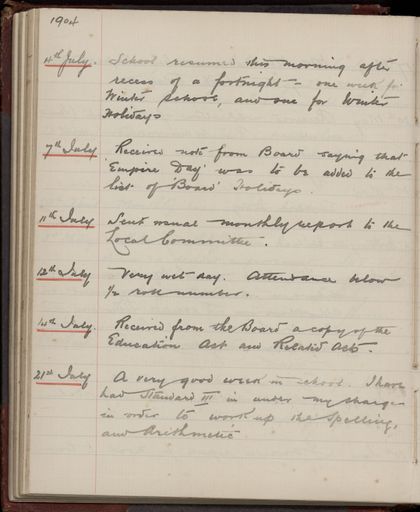 1904
4th July. School resumed this morning after
recess of a fortnight - one week for
Winter School, and one for Winter
Holidays
7th July Received note from Board saying that
'Empire Day' was to be added to the
list of 'Board' Holidays.
11th July Sent usual monthly report to the
Local Committee.
12th July Very wet day. Attendance below
1/2 roll number.
14th July. Received from the Board a copy of the
Education Act and Related Acts.
21st July A very good week in school. I have
had Standard III in under my charge
in order to work up the Spelling,
and Arithmetic